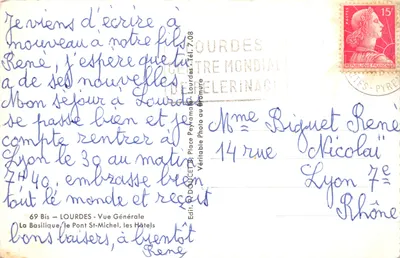 Je viens d'écrire à
nouveau a notre fils
René, j'espère que tu
a de ses nouvelles.
Mon séjour à Lourdes
se passe bien et je
compte rentrer à
Lyon le 30 au matin
7H40, embrasse bien
tout le monde et reçois
69 Bis - LOURDES - Vue Générale
La Basilique, le Pont St-Michel, les Hôtels
bons baisers, à bientôt
René
Edit. DOUCET, 3, Place Peyramale - Lourdes - Tél. 7.08
Véritable Photo au Bromure
LOURDES
CENTRE MONDIAL
DE PÈLERINAGE
15F
Mme Biguet René
14 rue Nicolaï
Lyon 7e
Rhône